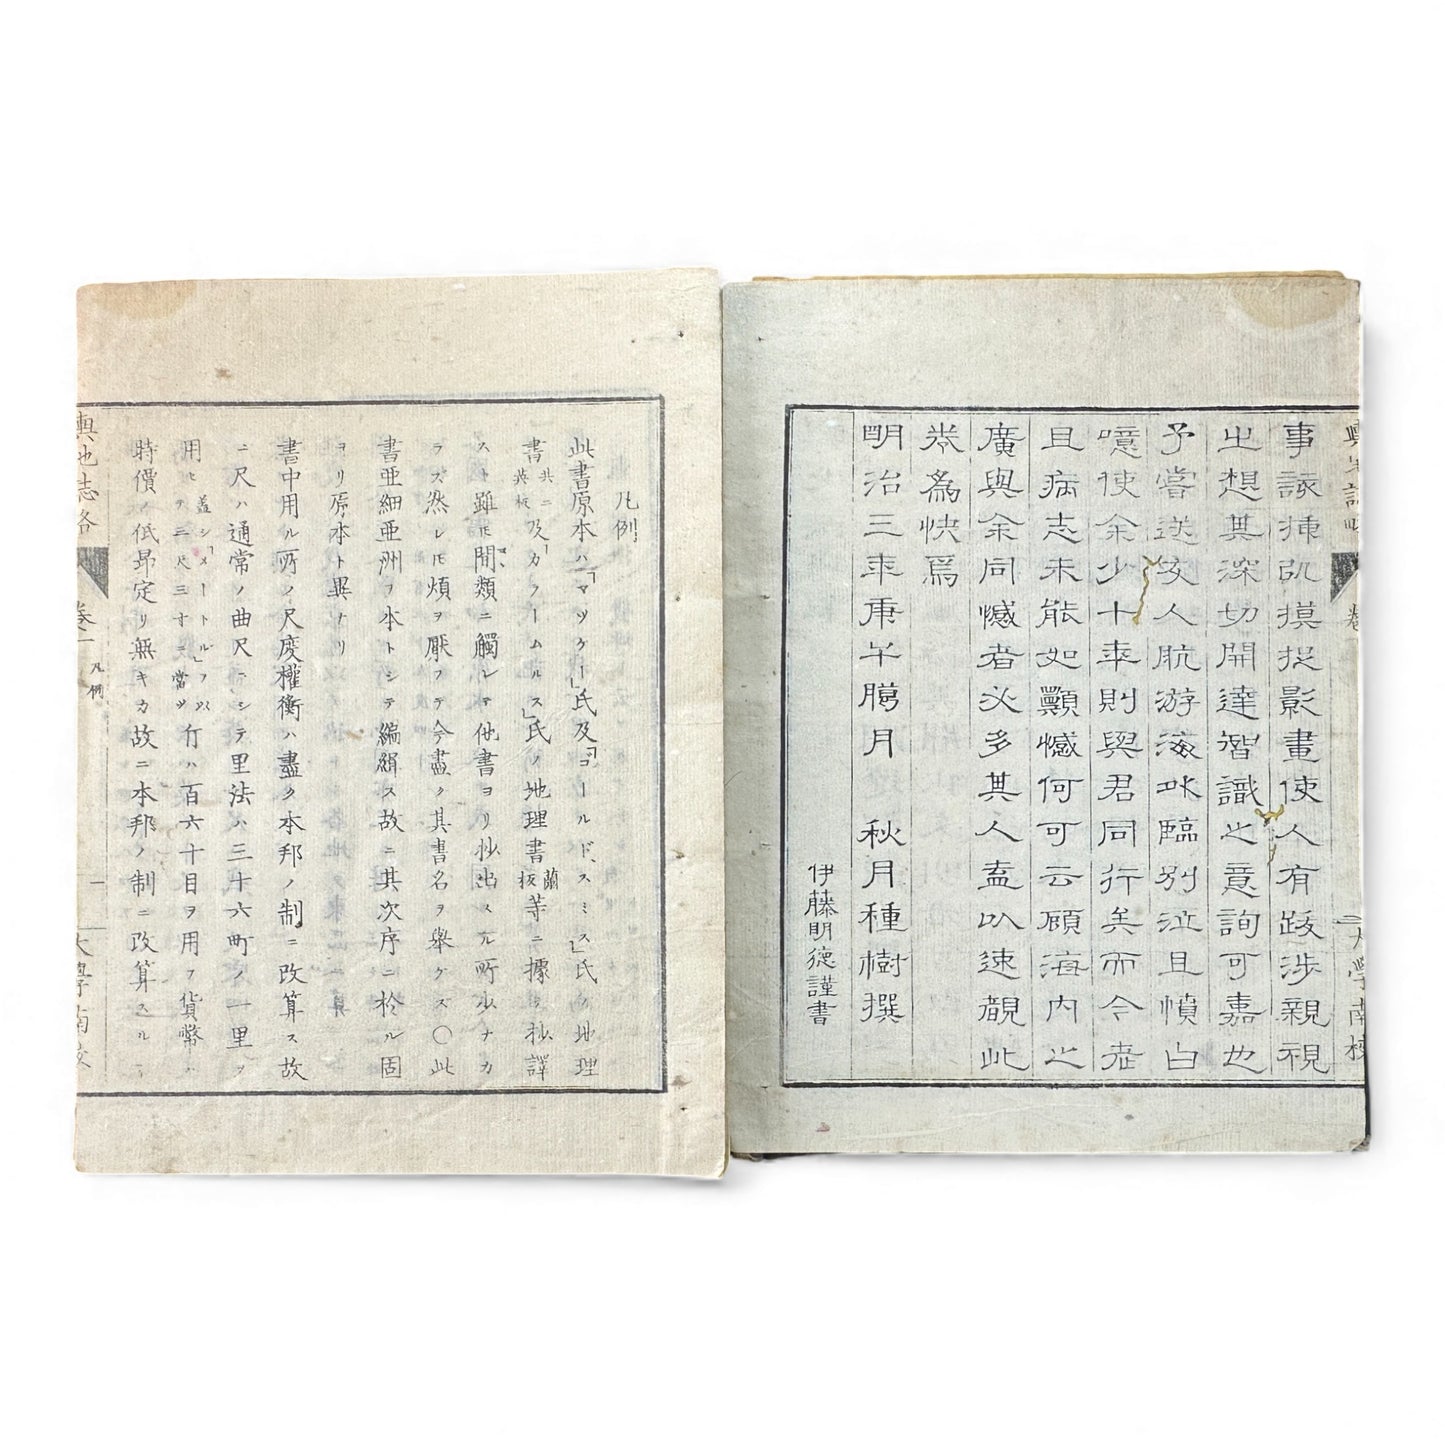 事該揷訊摸捉影畫使人有跋涉親視
之想其深切開達智識之意詢可嘉也
予嘗送友人航游海外臨別泣且憤白
噫使余少十年則與君同行矣而今老
且病志未能如顯憾何可云顧海内之
廣與余同憾者必多其人盍以速覩此
卷為快焉
明治三年庚午臘月 秋月種樹撰
伊藤明德謹書
大學南校
凡例
此書原本ハ「マツクー」氏及「ゴールドスミス」氏ノ地理
書共ニ英板及「カラームルス」氏ノ地理書蘭板等ニ據テ抄譯
スト雖モ間類ニ觸レテ他書ヨリ抄出スル所少ナカ
ラズ然レモ煩ヲ厭フテ今盡ク其書名ヲ舉ゲズ〇此
書亜細亜洲ヲ本トシテ編緝ス故ニ其次序ニ於ル固
ヨリ原本ト異ナリ
書中用ル所ノ尺度權衡ハ盡ク本邦ノ制ニ改算ス故
ニ尺ハ通常ノ曲尺ニシテ里法ハ三十六町ノ一里ヲ
用ヒ蓋シ「メートル」ヲ以テ三尺三寸ニ當ツ斤ハ百六十目ヲ用ヲ貨幣ハ
時價ノ低昻定リ無キカ故ニ本邦ノ制ニ改算スル
輿地誌略 卷一 凡例 一 大學南校